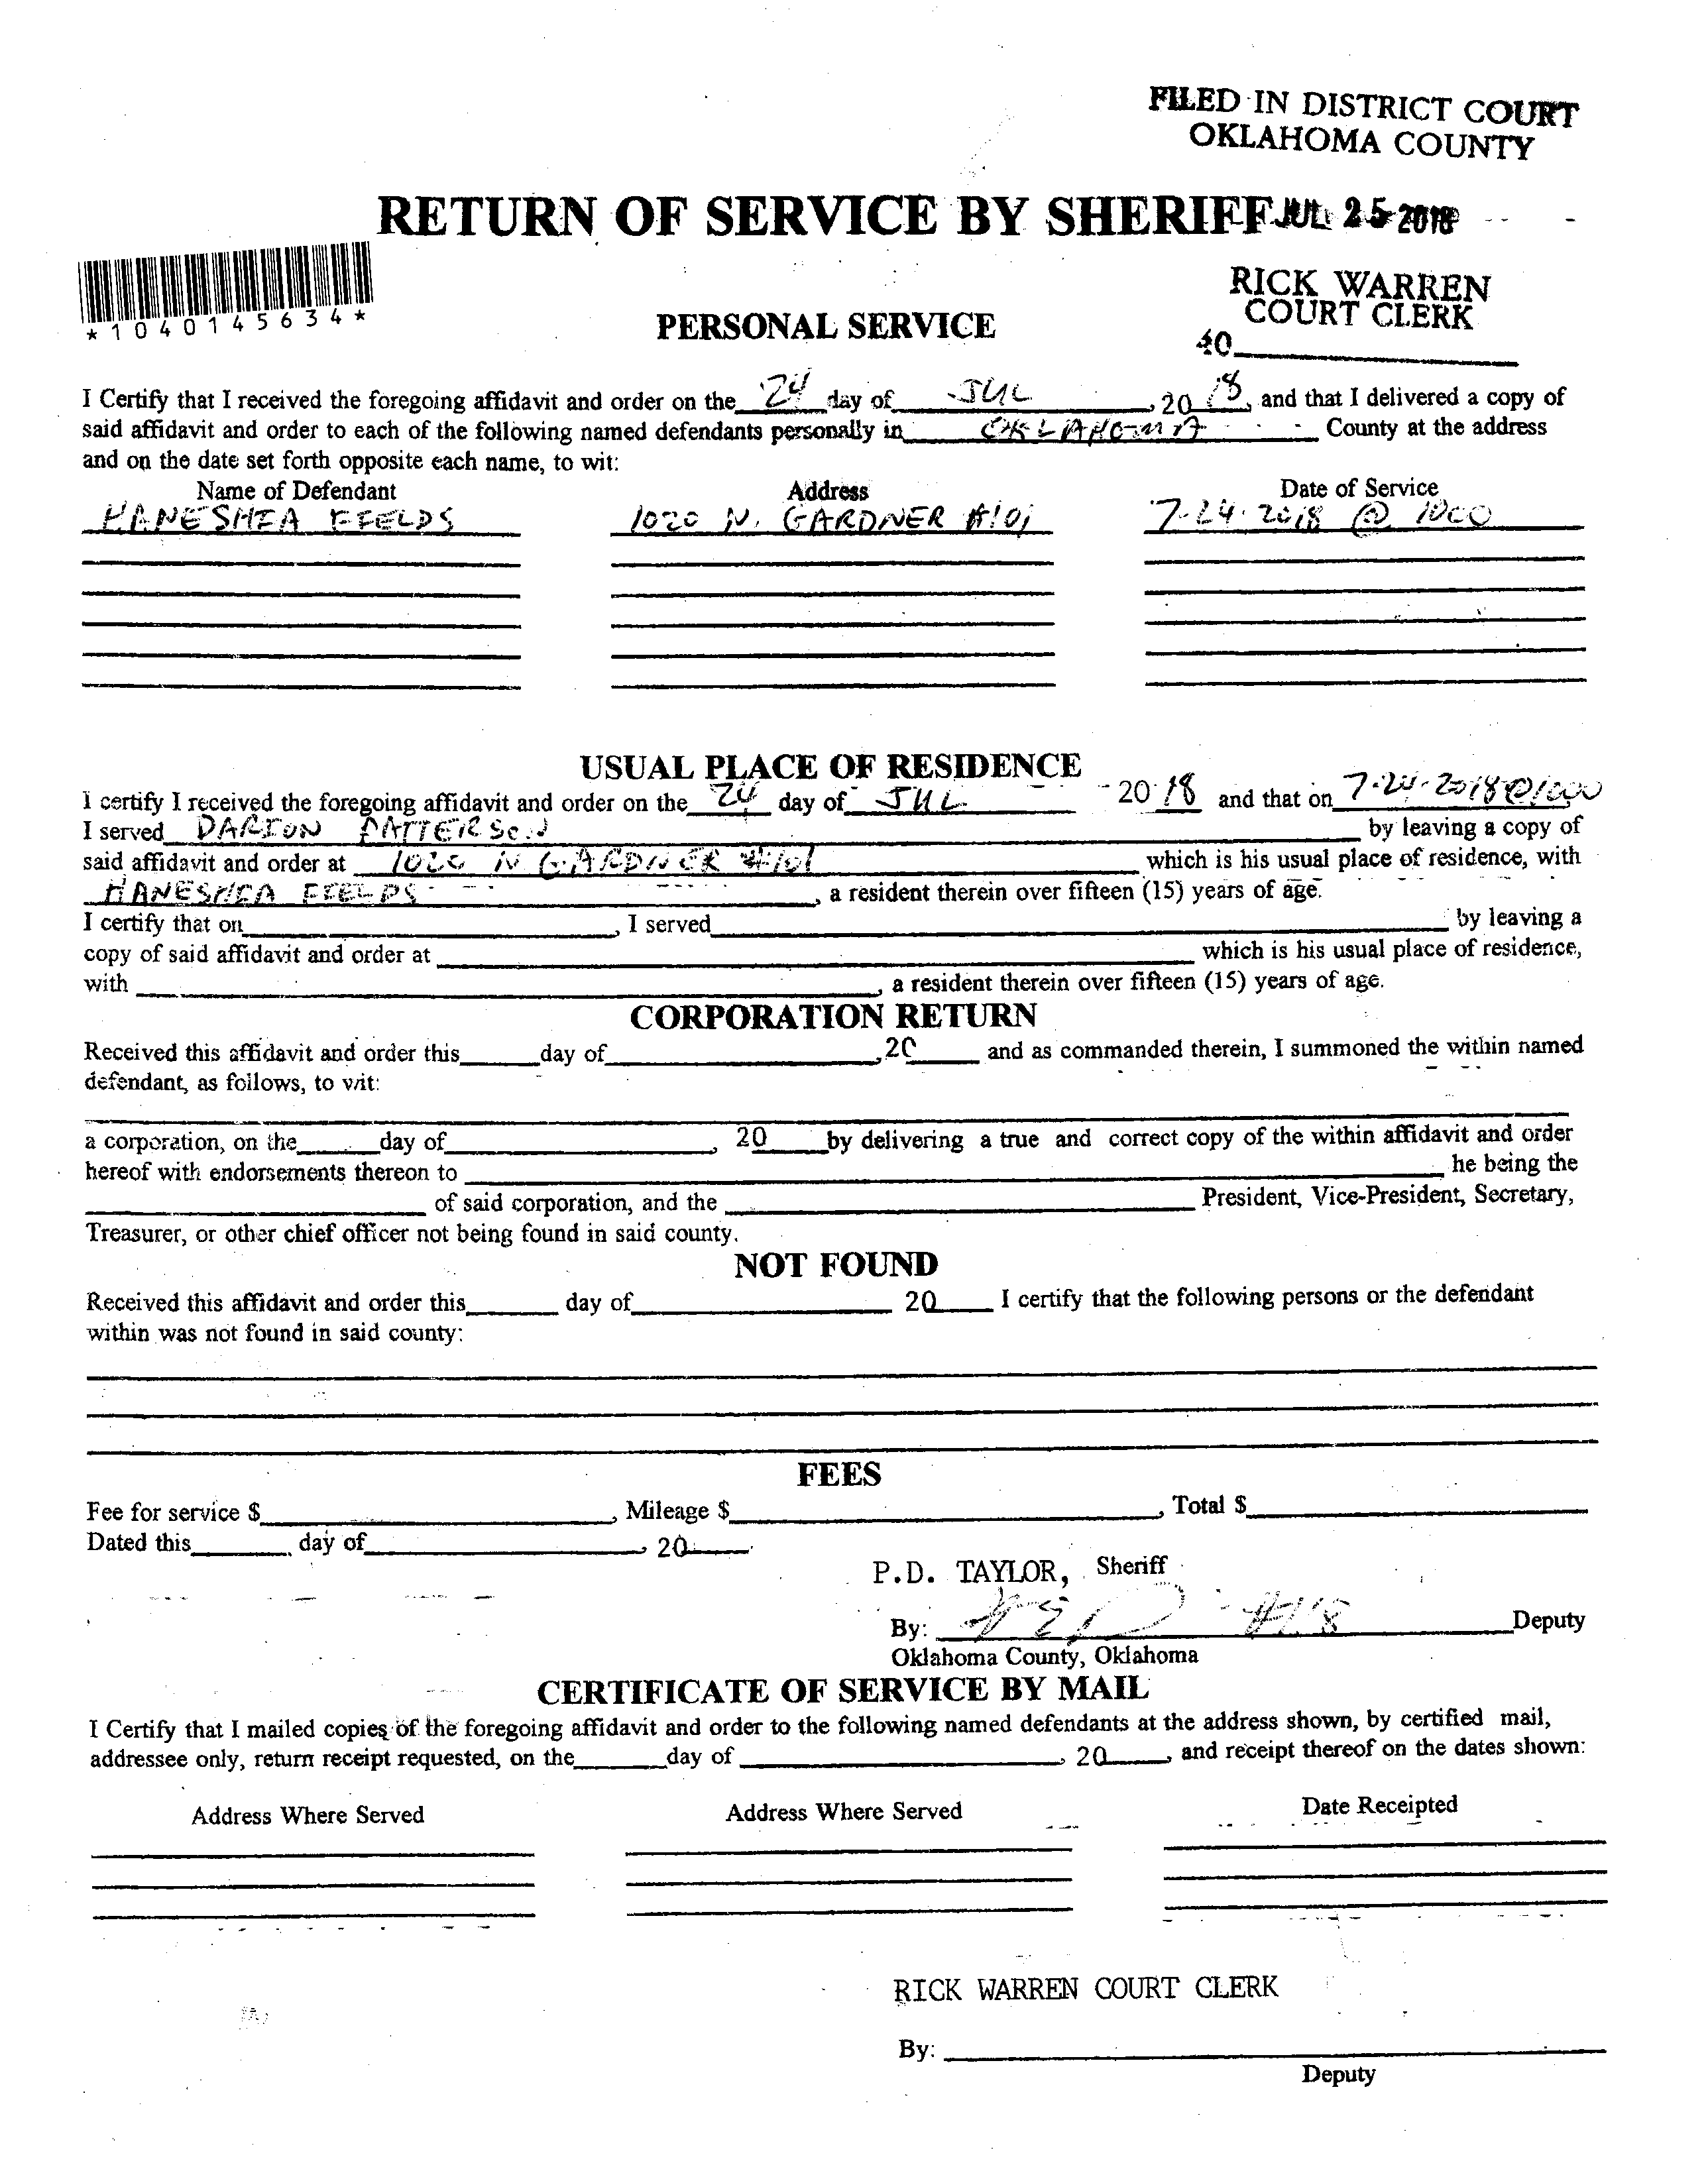 FILED IN DISTRICT COURT
OKLAHOMA COUNTY
RETURN OF SERVICE BY SHERIFF JUL 25 2018
*1040145634*
RICK WARREN
COURT CLERK
PERSONAL SERVICE
40
I Certify that I received the foregoing affidavit and order on the 24 day of JUL, 20 18, and that I delivered a copy of
said affidavit and order to each of the following named defendants personally in OKLAHOMA County at the address
and on the date set forth opposite each name, to wit:
Name of Defendant Address Date of Service
HANESHEA FIELDS 1020 N. GARDNER #101 7-24-2018 @ 1000
USUAL PLACE OF RESIDENCE
I certify I received the foregoing affidavit and order on the 24 day of JUL 20 18 and that on 7-24-2018@1000
I served DARION PATTERSON by leaving a copy of
said affidavit and order at 1020 N GARDNER #101 which is his usual place of residence, with
HANESHEA FIELDS, a resident therein over fifteen (15) years of age.
I certify that on, I served by leaving a
copy of said affidavit and order at which is his usual place of residence,
with, a resident therein over fifteen (15) years of age.
CORPORATION RETURN
Received this affidavit and order this day of, 20 and as commanded therein, I summoned the within named
defendant, as follows, to wit:
a corporation, on the day of, 20 by delivering a true and correct copy of the within affidavit and order
hereof with endorsements thereon to he being the
of said corporation, and the President, Vice-President, Secretary,
Treasurer, or other chief officer not being found in said county.
NOT FOUND
Received this affidavit and order this day of 20 I certify that the following persons or the defendant
within was not found in said county:
FEES
Fee for service $, Mileage $, Total $
Dated this, day of, 20
P.D. TAYLOR, Sheriff
By: #118 Deputy
Oklahoma County, Oklahoma
CERTIFICATE OF SERVICE BY MAIL
I Certify that I mailed copies of the foregoing affidavit and order to the following named defendants at the address shown, by certified mail,
addressee only, return receipt requested, on the day of, 20, and receipt thereof on the dates shown:
Address Where Served Address Where Served Date Receipted
RICK WARREN COURT CLERK
By:
Deputy